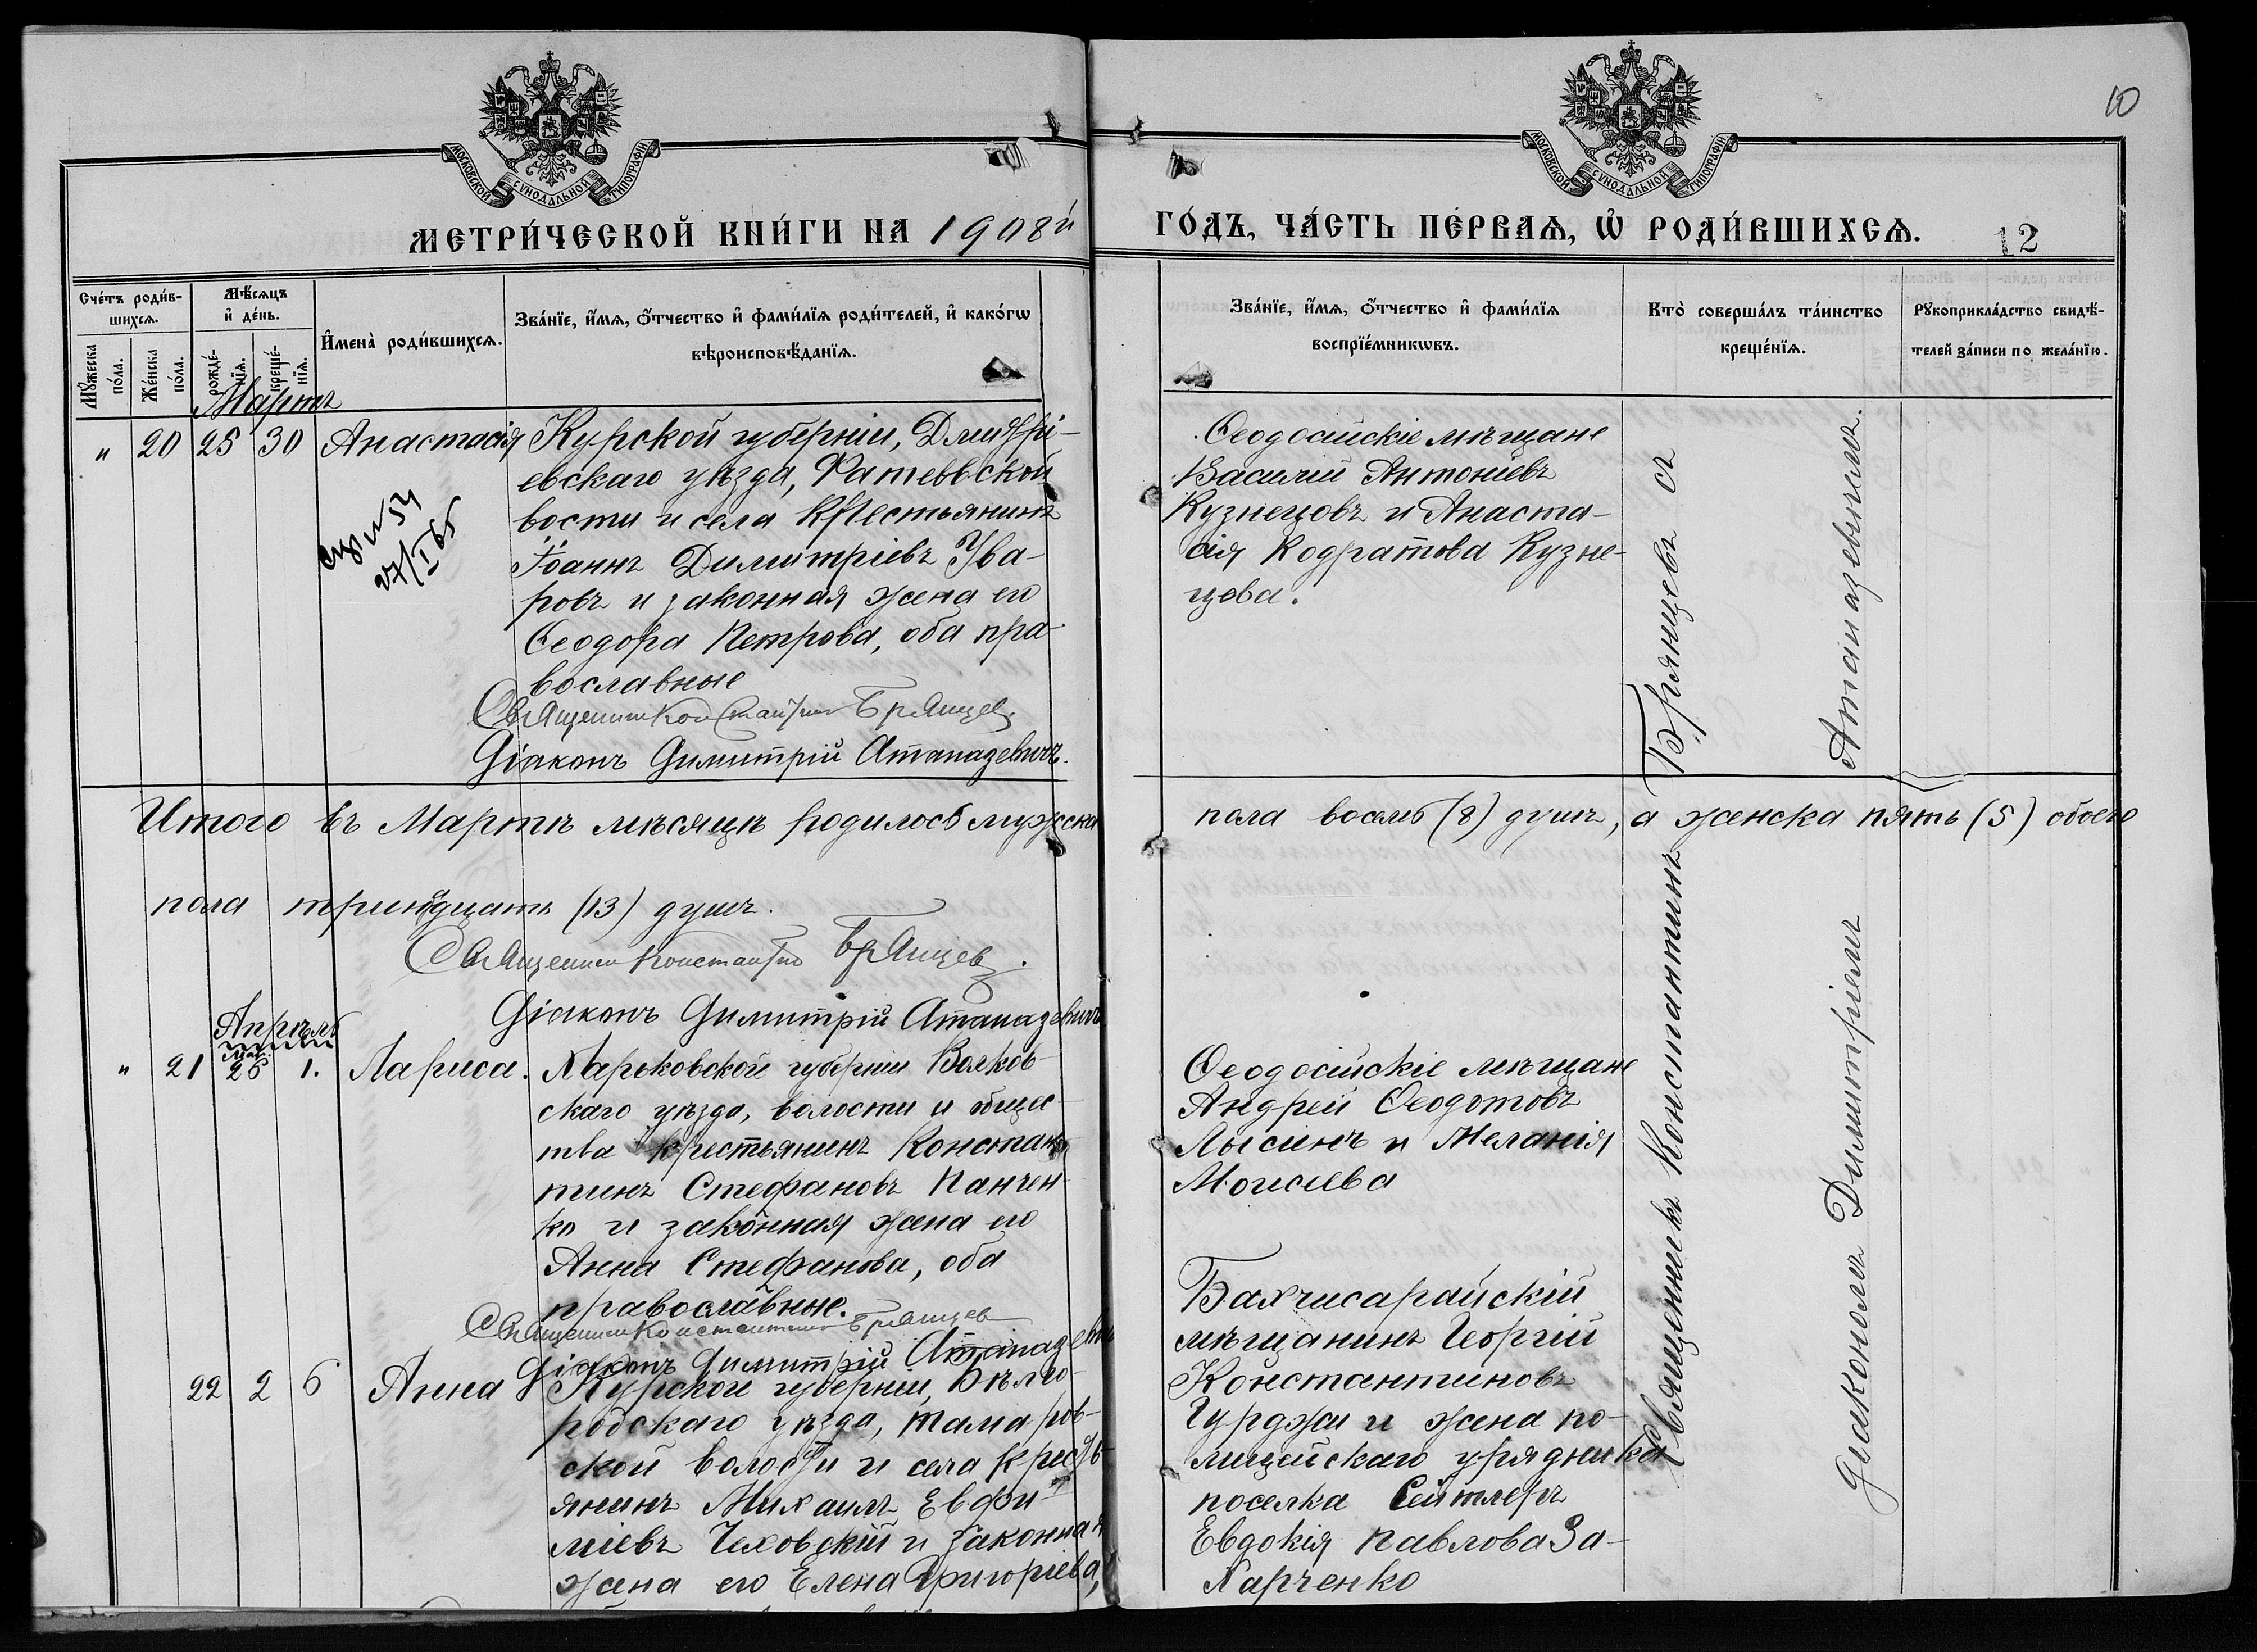 МОСКОВСКОЙ СѴНОДАЛЬНОЙ ТИПОГРАФІИ
МОСКОВСКОЙ СѴНОДАЛЬНОЙ ТИПОГРАФІИ
10
МЕТРИ́ЧЕСКОЙ КНИ́ГИ НА 1908й
ГО́ДЪ, ЧА́СТЬ ПЕ́РВАѦ, Ѡ҆ РОДИ́ВШИХСѦ.
12
Сче́тъ роди́в-
шихсѧ.
Мꙋ́жеска
по́ла.
Же́нска
по́ла.
Мѣ́сѧцъ
и҆ де́нь.
рожде́-
нїѧ.
креще́-
нїѧ.
И҆мена̀ роди́вшихсѧ.
Зва́нїе, и҆́мѧ, ѻ҆́тчество и҆ фами́лїѧ роди́телей, и҆ како́гѡ
вѣроисповѣ́данїѧ.
Зва́нїе, и҆́мѧ, ѻ҆́тчество и҆ фами́лїѧ
воспрїе́мникѡвъ.
Кто̀ соверша́лъ та́инство
креще́нїѧ.
Рꙋкоприкла́дство свидѣ́-
телей за́писи по жела́нїю.
Мартъ
" 20 25 30 Анастасія
Курской губерніи, Дмитрі-
евскаго уѣзда, Фатеевской
вости и села Крестьянинъ
Іоаннъ Димитріевъ Ува-
ровъ и законная жена его
Ѳеодора Петрова, оба пра-
вославные
Священник Константин Брянцев.
Діаконъ Димитрій Атаназевичъ.
27/I 65
Ѳеодосійскіе мѣщане
Василій Антоніевъ
Кузнецовъ и Анаста-
сія Кодратова Кузне-
цова.
Итого въ Мартѣ мѣсяцѣ родилось мужска
пола восемь (8) душъ, а женска пять (5) обоего
пола тринадцать (13) душъ.
Священник Константин Брянцев.
Діаконъ Димитрій Атаназевичъ
Апрѣль
Мар.
" 21 26 1. Лариса.
Харьковской губерніи Волков-
скаго уѣзда, волости и общес-
тва крестьянинъ Констан-
тинъ Стефановъ Панчен-
ко и законная жена его
Анна Стефанова, оба
православные.
Священник Константин Брянцев
Діаконъ Димитрій Атаназевичъ
Ѳеодосійскіе мѣщане
Андрей Ѳеодотовъ
Лысинъ и Меланія
Моисіева
22 2 6 Анна
Курской губерніи, Бѣлго-
родскаго уѣзда, Тамаров-
ской волости и села крестъ-
янинъ Михаилъ Евфи-
міевъ Чеховскій и законная
жена его Елена Григоріева,
Бахчисарайскій
мѣщанинъ Георгій
Константиновъ
Гурджи и жена по-
лицейскаго урядника
поселка Сейтлеръ
Евдокія Павлова За-
харченко
Священникъ Константинъ Брянцевъ съ
Діакономъ Димитріемъ Атаназевичемъ.